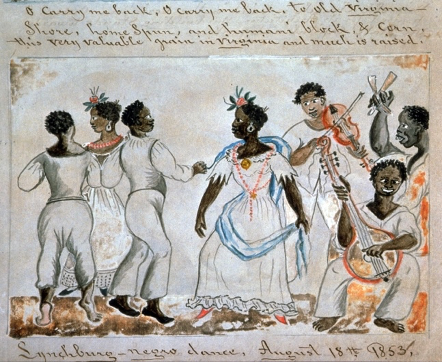 O Carry me back, O carry me back to old Virginia
Shore, home Spun, and block, & Corn,
this very valuable grain in Virginia and much is raised.
Lynchburg - negro dance, August 18th 1853,